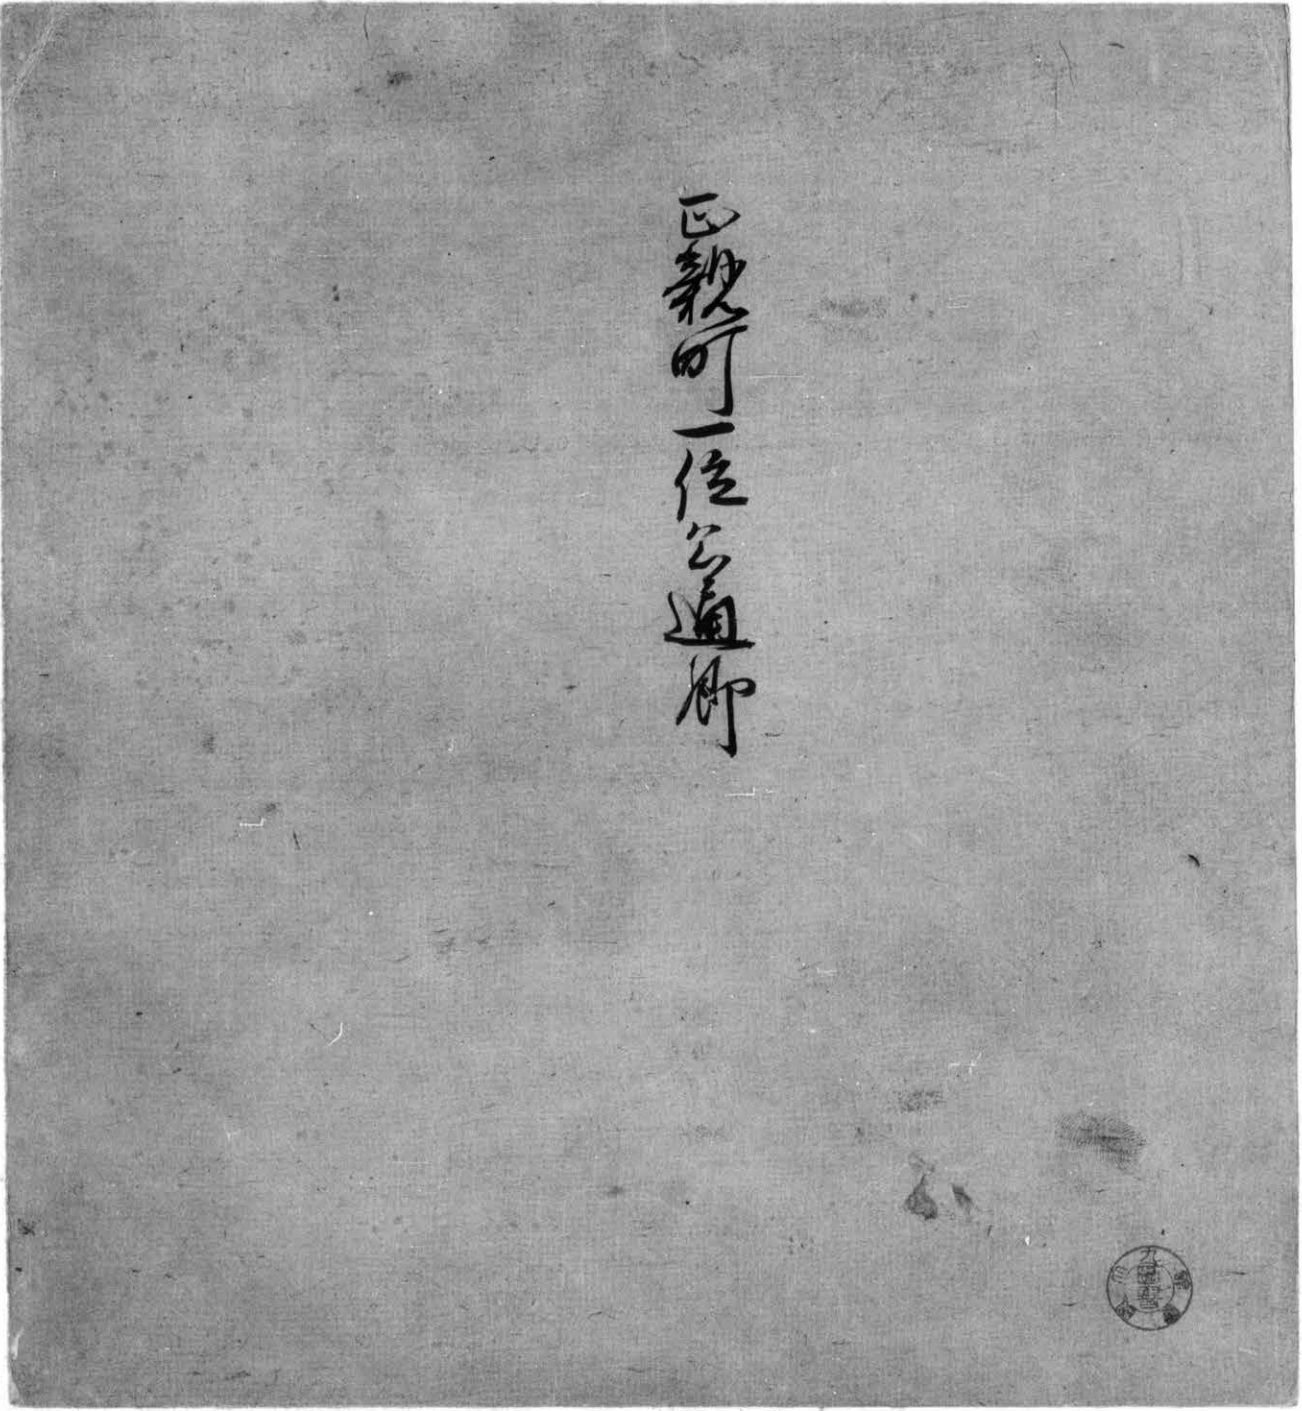 正親町一位公通卿